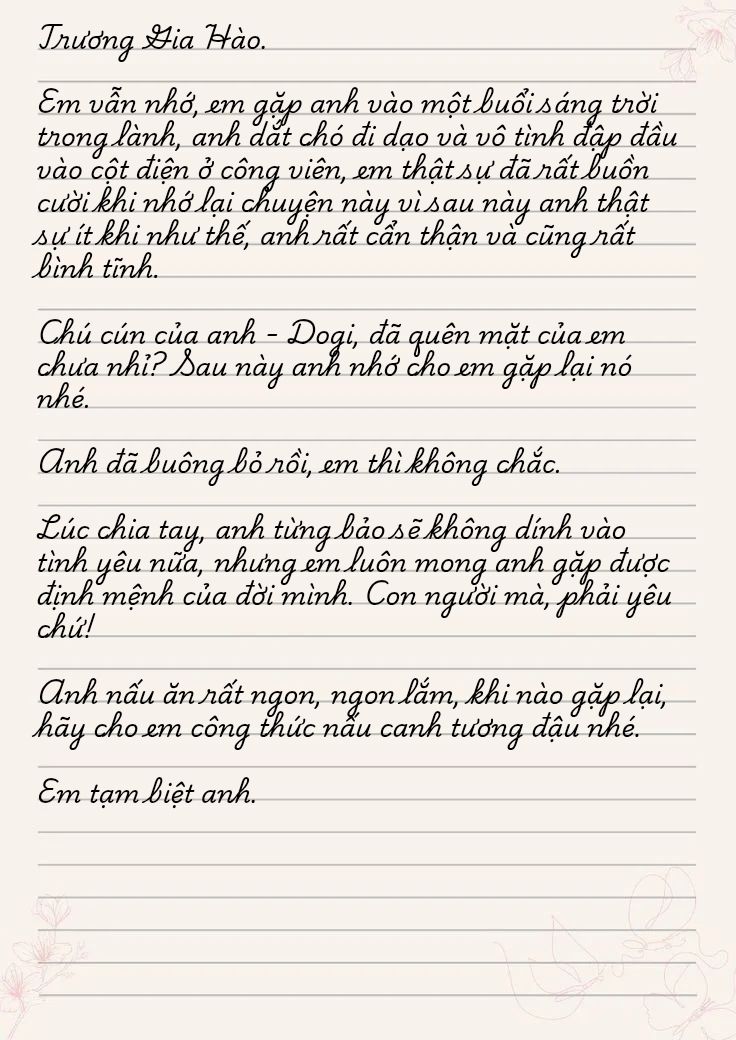 Trương Gia Hào.
Em vẫn nhớ, em gặp anh vào một buổi sáng trời
trong lành, anh dắt chó đi dạo và vô tình đập đầu
vào cột điện ở công viên, em thật sự đã rất buồn
cười khi nhớ lại chuyện này vì sau này anh thật
sự ít khi như thế, anh rất cẩn thận và cũng rất
bình tĩnh.
Chú cún của anh - Dogi, đã quên mặt của em
chưa nhỉ? Sau này anh nhớ cho em gặp lại nó
nhé.
Anh đã buông bỏ rồi, em thì không chắc.
Lúc chia tay, anh từng bảo sẽ không dính vào
tình yêu nữa, nhưng em luôn mong anh gặp được
định mệnh của đời mình. Con người mà, phải yêu
chứ!
Anh nấu ăn rất ngon, ngon lắm, khi nào gặp lại,
hãy cho em công thức nấu canh tương đậu nhé.
Em tạm biệt anh.